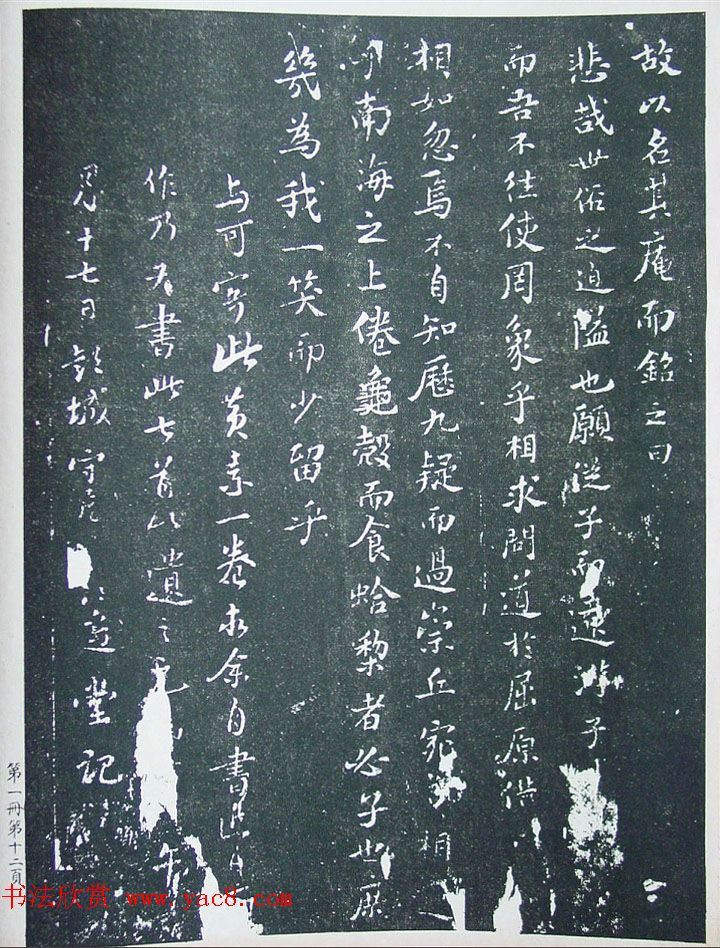 故以名其庵而銘之曰
悲哉世俗之迫隘也願從子而遠游子
而吾不往使罔象乎相求問道於屈原借
相如忽焉不自知歷九疑而過崇丘宛 相
南海之上倦龜殼而食蛤棃者必子也庶
幾為我一笑而少留乎
與可寄此黃素一卷求余自書近日
作乃為書此七首以遺之元
月十七日彭城守居 臺記
第一冊第十二頁
书法欣赏 www.yac8.com